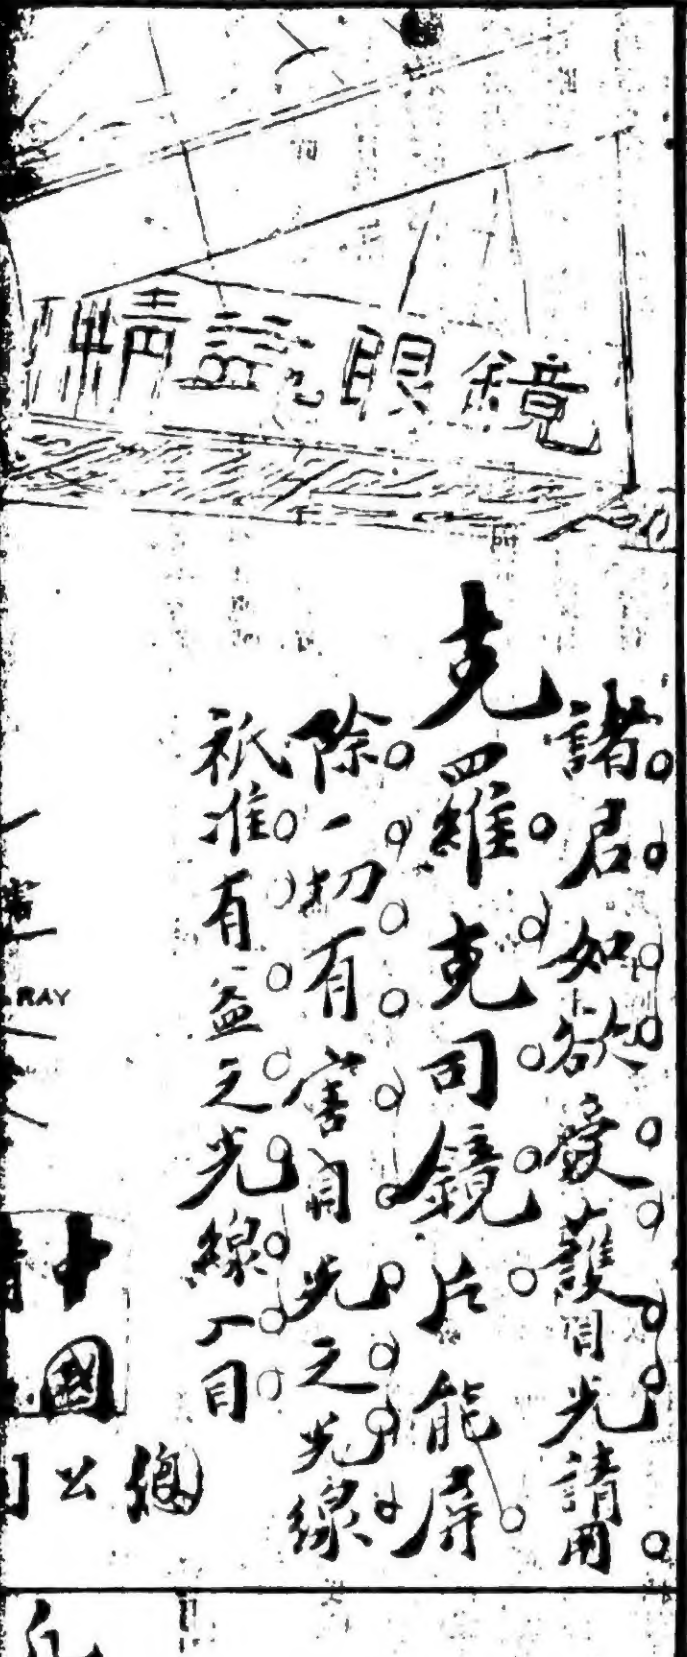 精益眼鏡
諸君如欲愛護目光請用
克羅克司鏡片能屏
除一切有害目光之光線
祇准有益之光線入目
RAY
中國
總公司